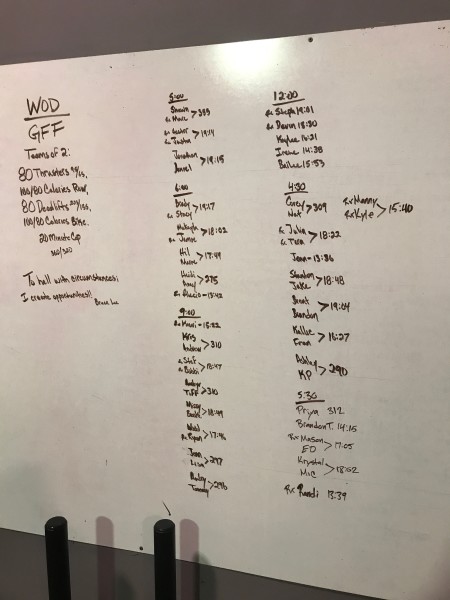 WOD
GFF
Teams of 2:
80 Thrusters
100/80 Calories Row,
80 Deadlifts
100/80 Calories Bike.
20 Minute Cap
To hell with circumstances;
I create opportunities!!
Bruce Lee
5:00
Shawn
Rx Marc > 333
19:14
Jonathan
Daniel > 19:15
6:00
Brady
Rx Stacy > 19:17
Makayla
Rx Jamie > 18:02
Hil
17:49
Heidi
275
13:42
9:00
15:22
Kris
Andrew > 310
Rx Stef
Rx Bobbi > 18:47
Tiff > 310
Missy
18:49
Rx Ryan > 17:46
Jenn
Lisa > 297
Bailey
Tammy > 296
12:00
Rx Steph 19:01
Rx Devon 18:30
Kaylee 16:21
Irene 14:38
Bailee 15:53
4:30
Corey
Nat > 309
Rx Manny
Rx Kyle > 15:40
Rx Julia
Rx Tara > 18:22
Jenn - 13:36
Jake > 18:48
Brent
Brandon > 19:04
Kallie
Fran > 16:27
Ashley
KP > 290
5:30
Priya 312
Brandon T. 14:15
Rx Mason
ED > 17:05
Krystal
Mic > 18:02
Rx Randi 13:39